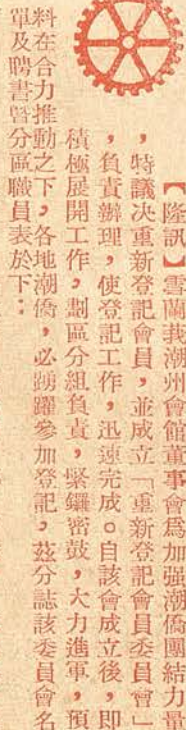 【隆訊】雪蘭莪潮州會館董事會爲加强潮僑團結力量
，特議决重新登記會員，並成立「重新登記會員委員會」
，負責辦理，使登記工作，迅速完成。自該會成立後，即
積極展開工作，劃區分組負責，緊鑼密鼓，大力進軍，預
料在合力推動之下，各地潮僑，必踴躍參加登記，茲分誌該委員會名
單及聘書曁分區職員表於下：